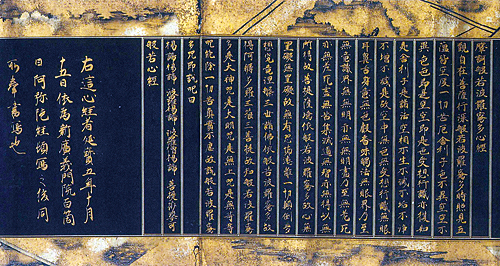 摩訶般若波羅蜜多心經
觀自在菩薩行深般若波羅蜜多時照見五
蘊皆空度一切苦厄舍利子色不異空空不
異色色即是空空即是色受想行識亦復如
是舍利子是諸法空相不生不滅不垢不淨
不增不減是故空中無色無受想行識無眼
耳鼻舌身意無色聲香味觸法無眼界乃至
無意識界無無明亦無無明盡乃至無老死
亦無老死盡無苦集滅道無智亦無得以無
所得故菩提薩埵依般若波羅蜜多故心無
罣礙無罣礙故無有恐怖遠離一切顛倒夢
想究竟涅槃三世諸佛依般若波羅蜜多故
得阿耨多羅三藐三菩提故知般若波羅蜜
多是大神呪是大明呪是無上呪是無等等
呪能除一切苦真實不虛故說般若波羅蜜
多呪即說呪曰
揭諦揭諦 波羅揭諦 波羅僧揭諦 菩提
般若心經
右這心經者延五年十月
十五日依廣義門院百箇
日阿弥陀經之後同
所也